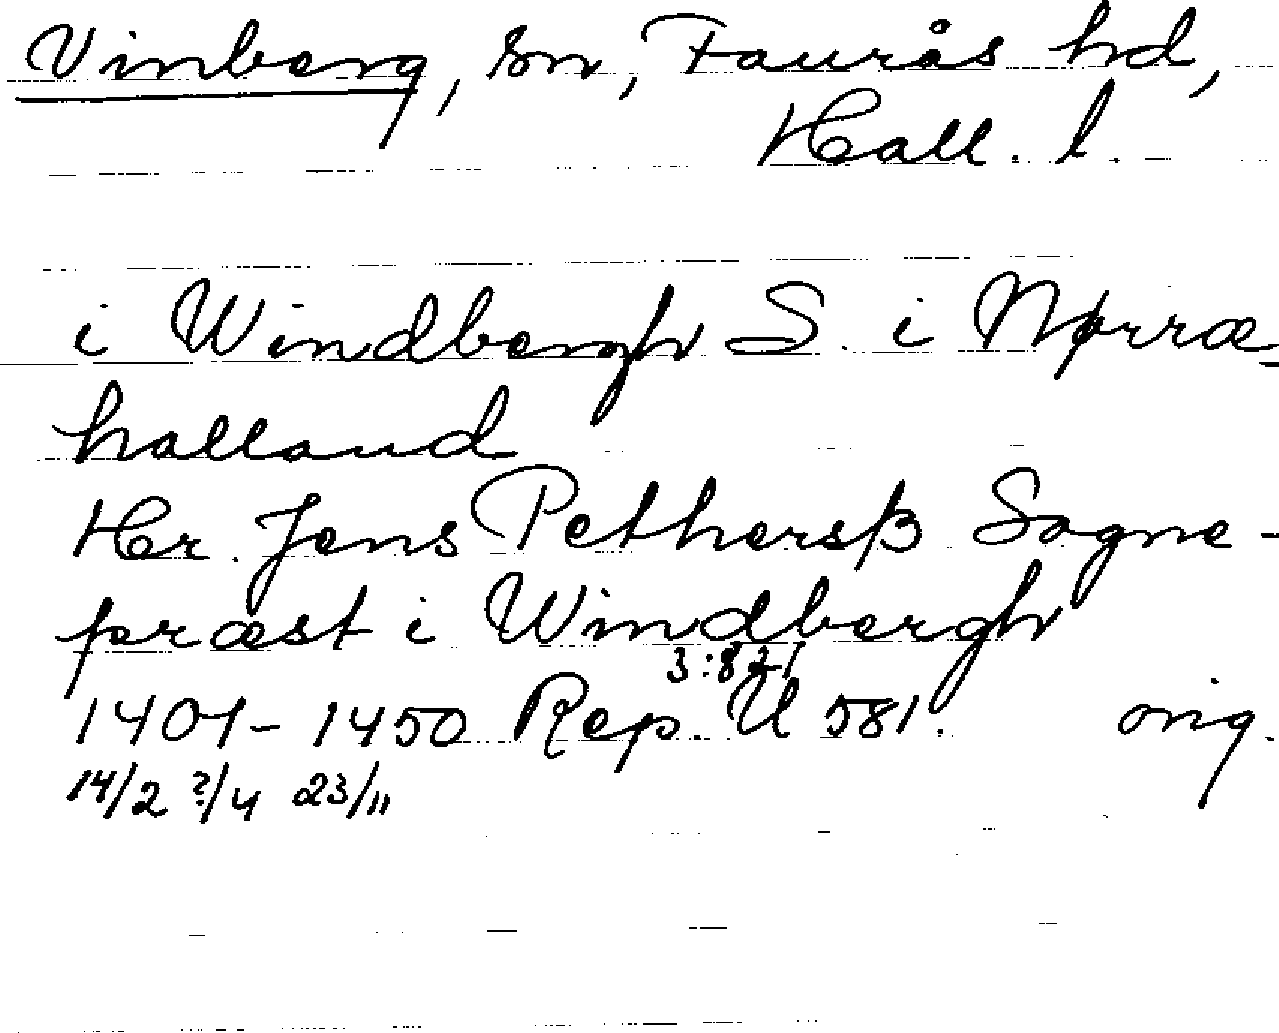 Vinberg, sn, Faurås hd,
Hall. l.
i Windbergh S. i Nørræ-
halland
Hr. Jens Pethersβ Sogne-
præst i Windbergh
3:821
1401-1450 Rep. U 581. orig.
14/2 ?/4 23/11